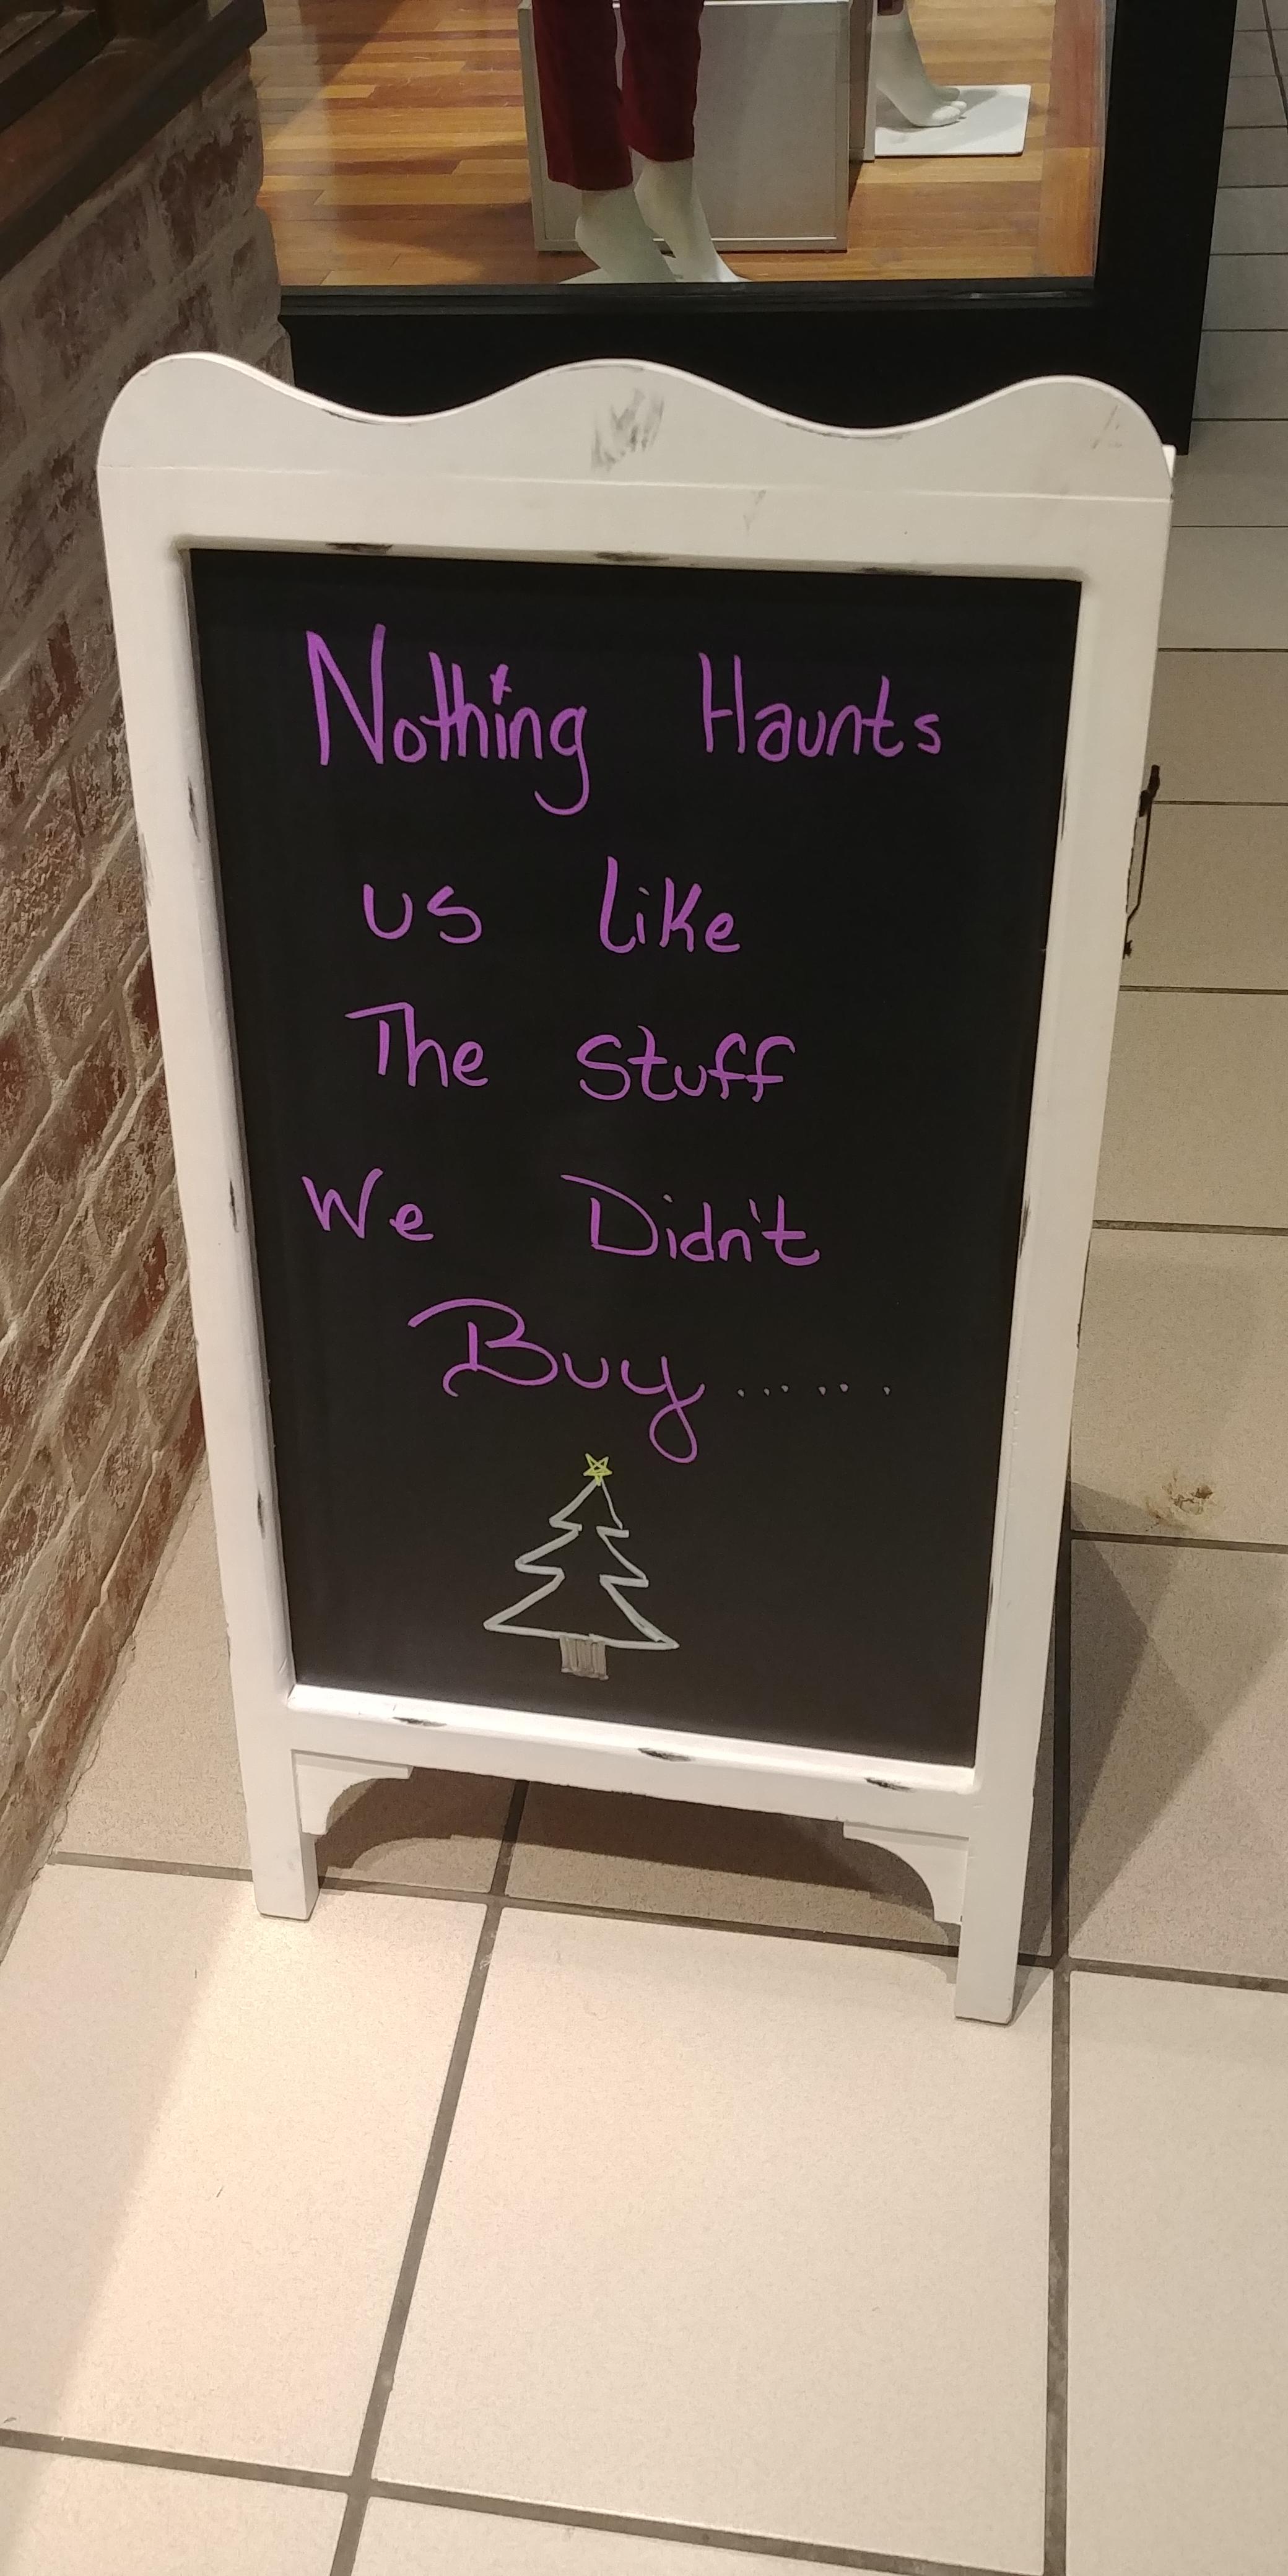 Nothing Haunts
us like
The Stuff
We Didn't
Buy......